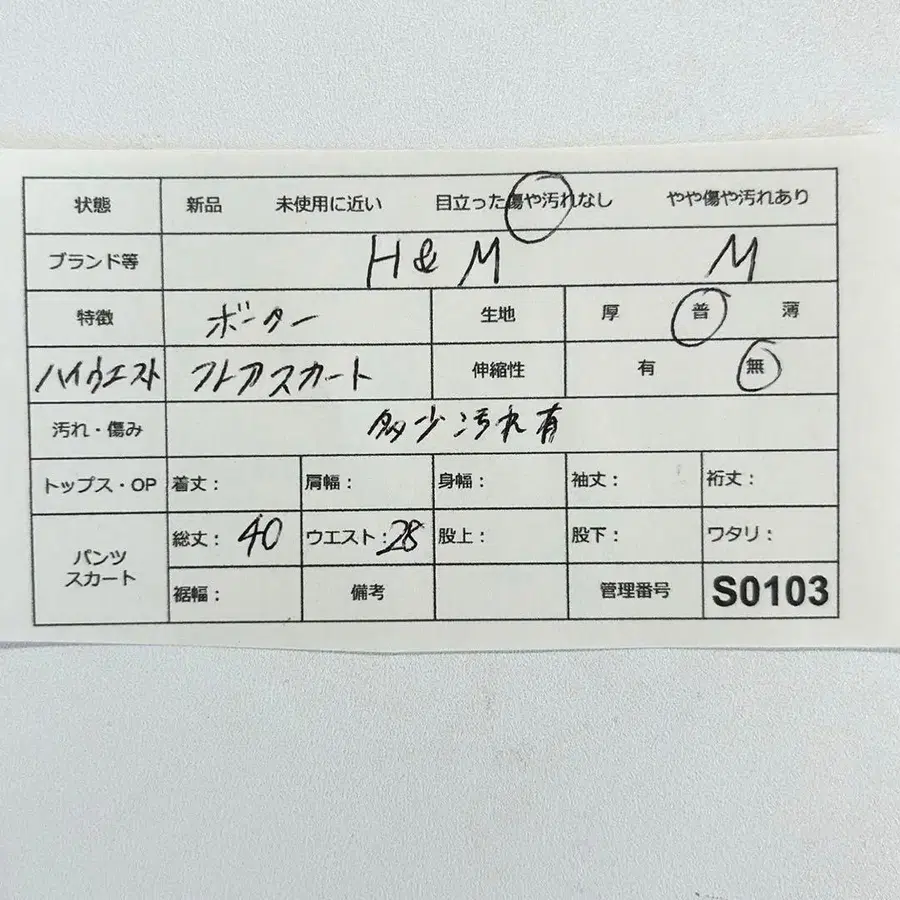 状態 新品 未使用に近い 目立った傷や汚れなし やや傷や汚れあり
ブランド等 H&M M
特徴 ボーダー 生地 厚 普 薄
ハイウエスト フレアスカート 伸縮性 有 無
汚れ・傷み 多少汚れ有
トップス・OP 着丈： 肩幅： 身幅： 袖丈： 裄丈：
パンツ
スカート
総丈：40 ウエスト：28 股上： 股下： ワタリ：
裾幅： 備考 管理番号 S0103